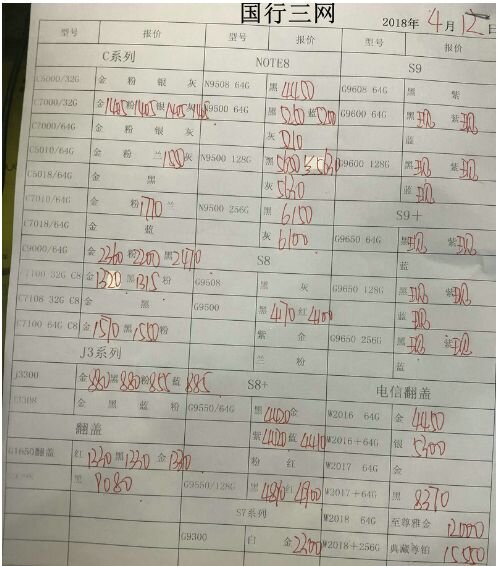 国行三网
2018年 4月 12日
型号 报价 型号 报价 型号 报价
C系列 NOTE8 S9
C5000/32G 金 粉 银 灰 N9508 64G 黑 4450 G9608 64G 黑 紫
C7000/32G 金1405 粉1405 银1405 灰1405 N9500 64G 黑5260 蓝5200 G9600 64G 黑现 紫现
C7000/64G 金 粉 银 灰 灰5210 蓝
C5010/64G 金 粉 兰 灰 N9500 128G 黑 G9600 128G 黑现 紫现
C5018/64G 金 黑 灰 蓝现
C7010/64G 金 粉1770 兰 N9500 256G 黑6150 S9+
C7018/64G 金 蓝 灰6100 G9650 64G 黑现 紫现
C9000/64G 金2360 粉2200 黑2470 S8 蓝
C7100 32G C8 金1320 黑1315 粉 G9508 黑 灰 G9650 128G 黑现 紫现
C7108 32G C8 金 黑 G9500 黑 红 蓝现
C7100 64G C8 金1570 黑1550 粉 紫 金 G9650 256G 黑现 紫现
J3系列 兰 粉 蓝
J3300 金880 黑880 粉855 蓝885 S8+ 电信翻盖
J3308 金 黑 蓝 粉 G9550/64G 黑4420 W2016 64G 金4450
翻盖 紫4420 蓝4410 W2016+64G 银5300
G1650翻盖 红1330 黑1330 金1330 粉 红 W2017 64G 金
黑8080 G9550/128G 黑 红4900 W2017+64G 黑8370
S7系列 W2018 64G 至尊雅金12000
G9300 白 金2300 W2018+256G 典藏尊铂15550